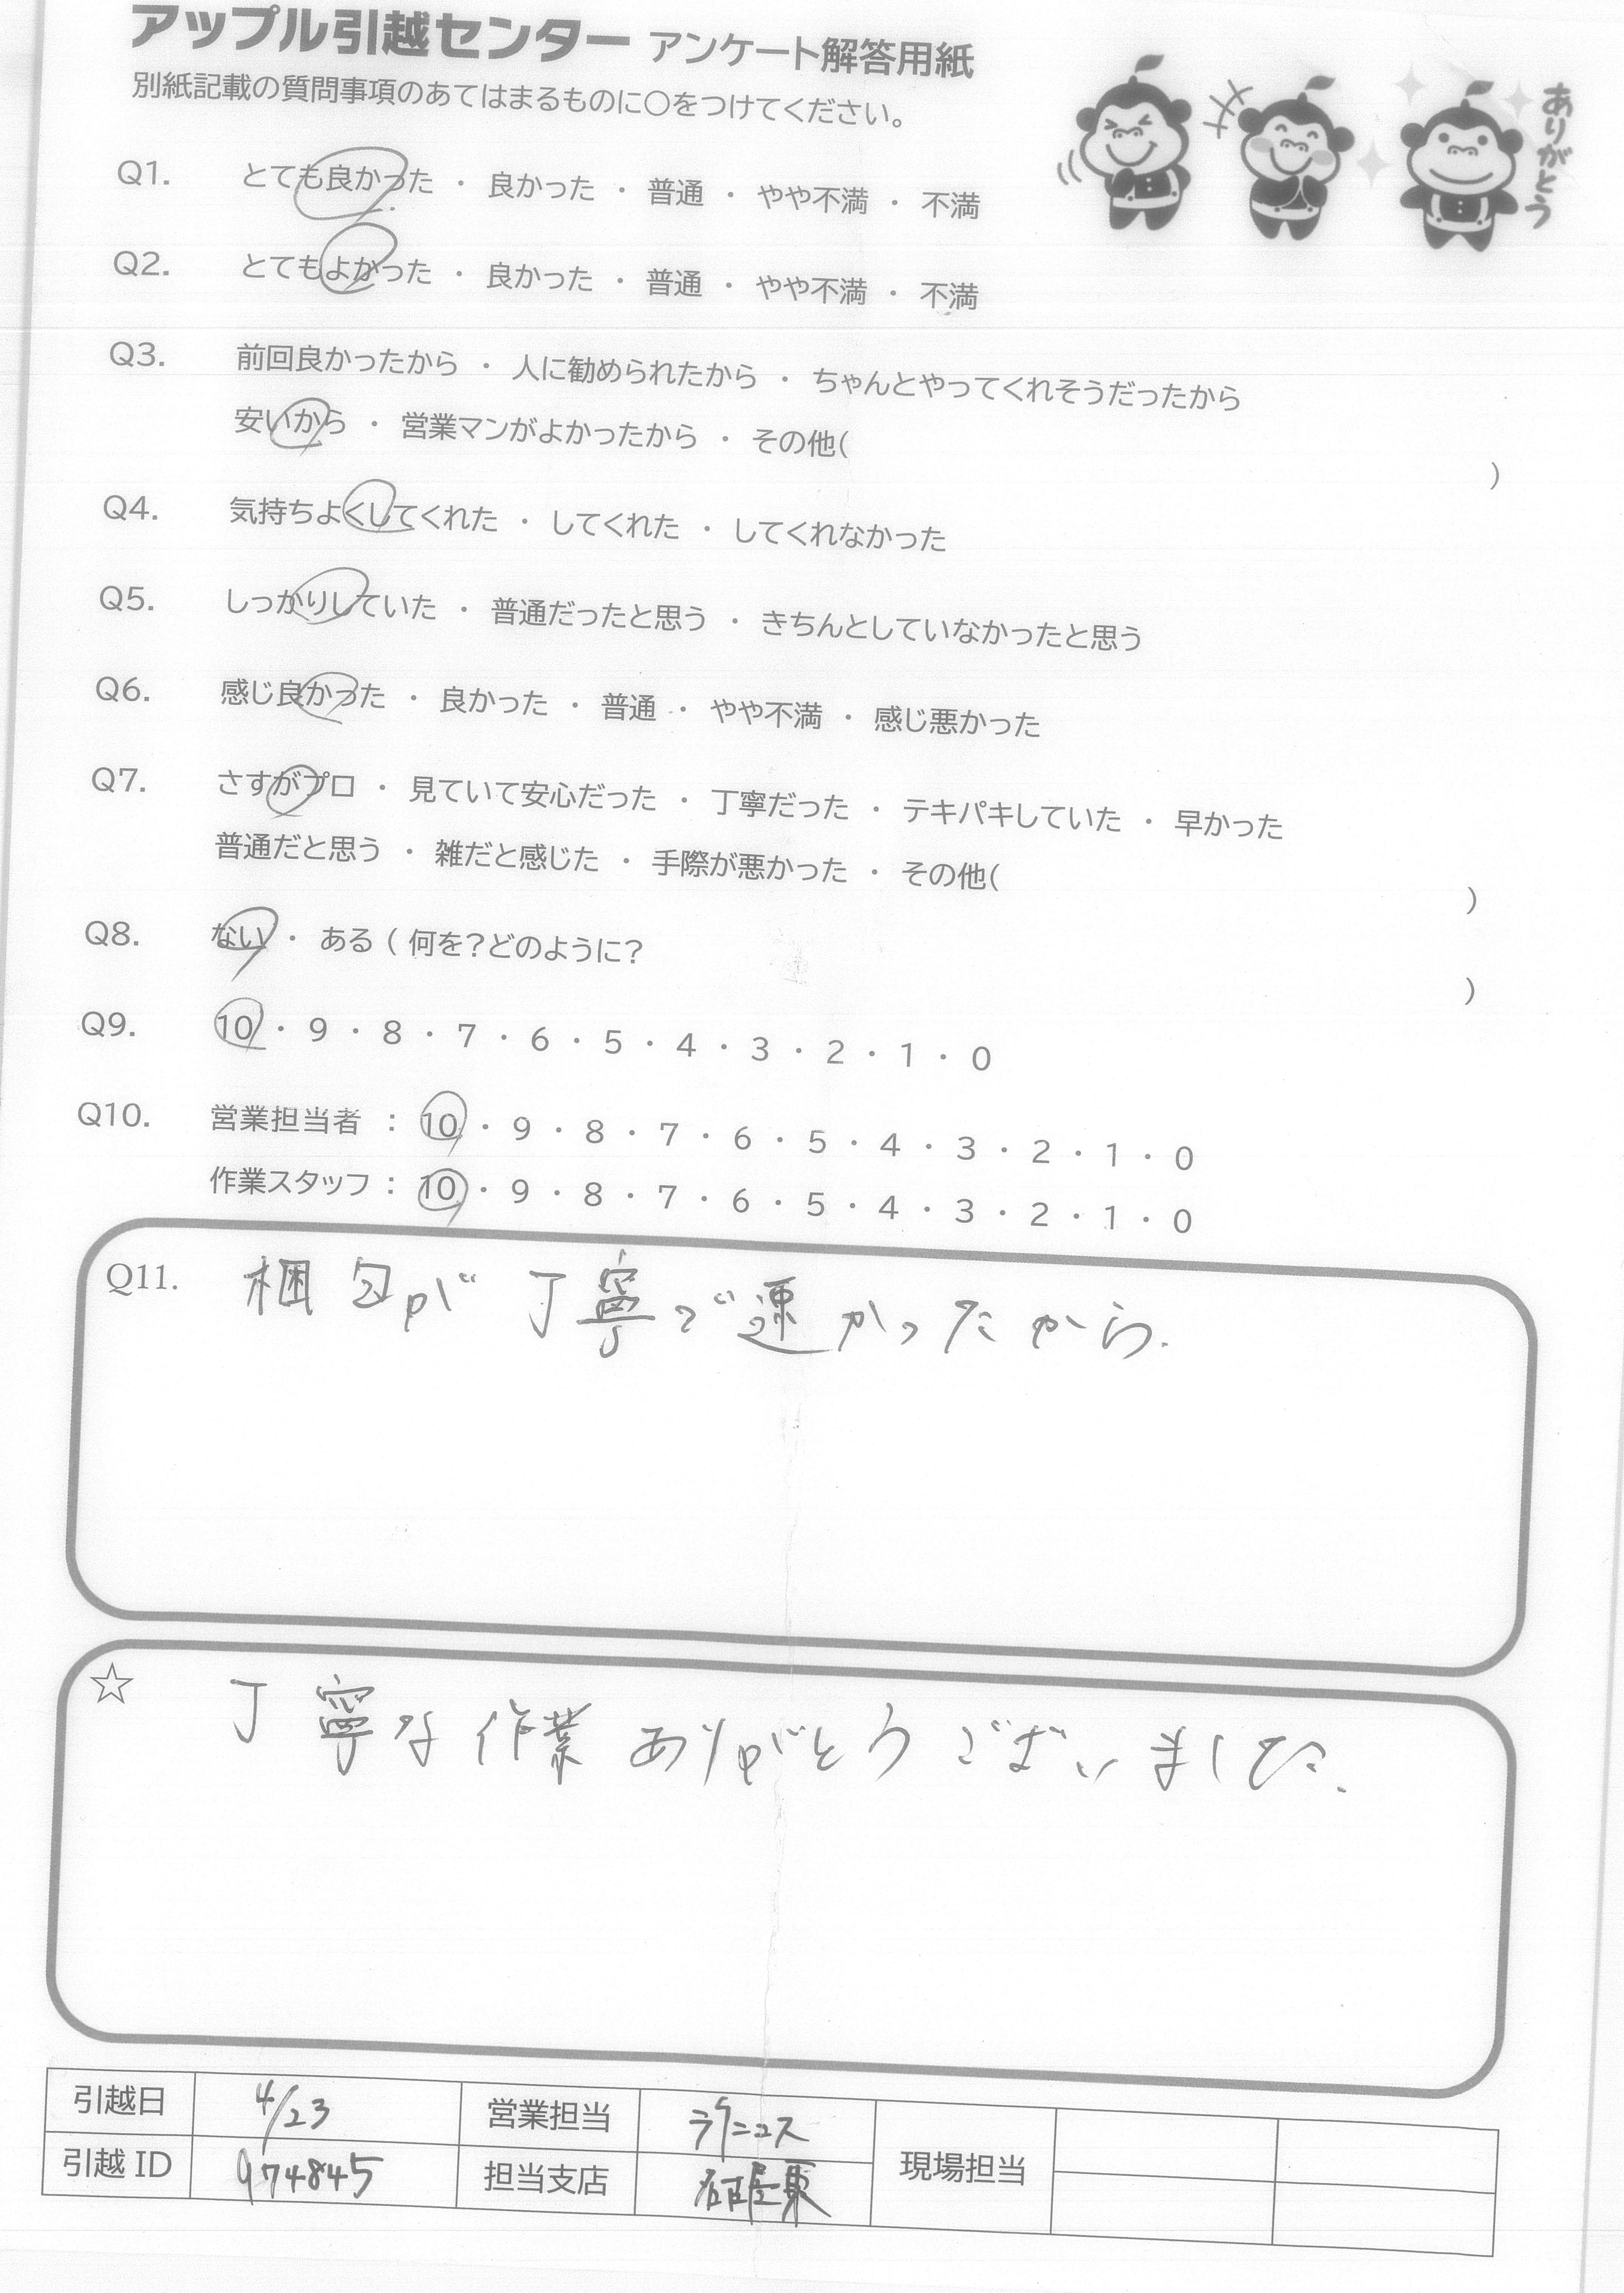 アップル引越センター アンケート解答用紙
別紙記載の質問事項のあてはまるものに○をつけてください。
ありがとう
Q1. とても良かった ・ 良かった ・ 普通 ・ やや不満 ・ 不満
Q2. とてもよかった ・ 良かった ・ 普通 ・ やや不満 ・ 不満
Q3. 前回良かったから ・ 人に勧められたから ・ ちゃんとやってくれそうだったから
安いから ・ 営業マンがよかったから ・ その他( )
Q4. 気持ちよくしてくれた ・ してくれた ・ してくれなかった
Q5. しっかりしていた ・ 普通だったと思う ・ きちんとしていなかったと思う
Q6. 感じ良かった ・ 良かった ・ 普通 ・ やや不満 ・ 感じ悪かった
Q7. さすがプロ ・ 見ていて安心だった ・ 丁寧だった ・ テキパキしていた ・ 早かった
普通だと思う ・ 雑だと感じた ・ 手際が悪かった ・ その他( )
Q8. ない ・ ある ( 何を?どのように? )
Q9. 10 ・ 9 ・ 8 ・ 7 ・ 6 ・ 5 ・ 4 ・ 3 ・ 2 ・ 1 ・ 0
Q10. 営業担当者 : 10 ・ 9 ・ 8 ・ 7 ・ 6 ・ 5 ・ 4 ・ 3 ・ 2 ・ 1 ・ 0
作業スタッフ : 10 ・ 9 ・ 8 ・ 7 ・ 6 ・ 5 ・ 4 ・ 3 ・ 2 ・ 1 ・ 0
Q11. 梱包が丁寧で速かったから.
☆ 丁寧な作業ありがとうございました.
引越日 4/23 営業担当 現場担当
引越 ID 974845 担当支店 名古屋東